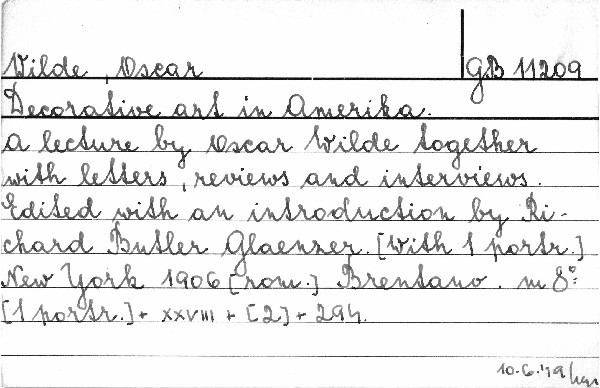 Wilde, Oscar GB 11209
Decorative art in Amerika.
A lecture by Oscar Wilde together
with letters, reviews and interviews.
Edited with an introduction by Ri-
chard Butler Glaenzer. [With 1 portr.]
New York 1906 [rom.] Brentano. m 8°:
[1 portr.] + XXVIII + [2] + 294.
10.6.'49/